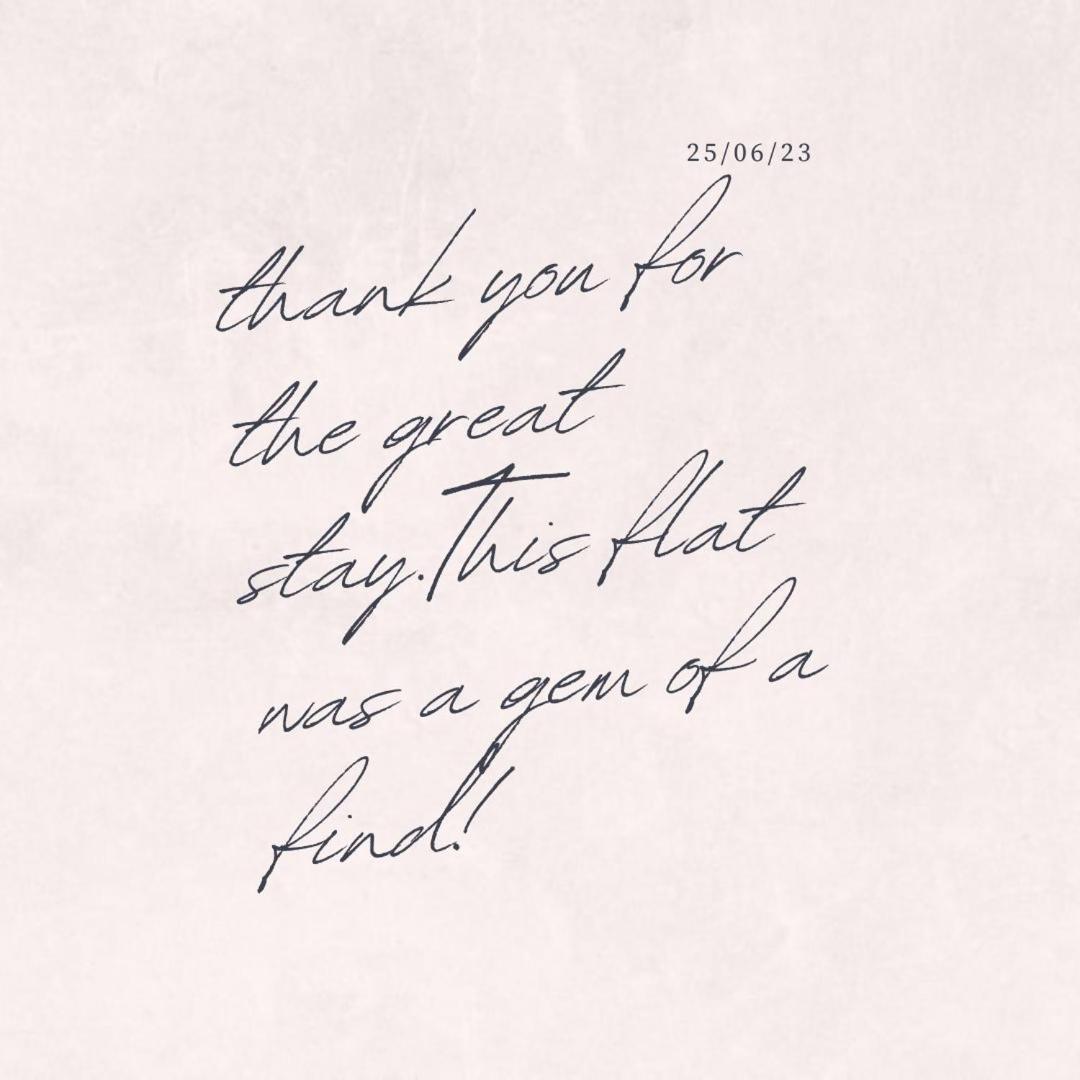 25/06/23
thank you for
the great
stay.This flat
was a gem of a
find!